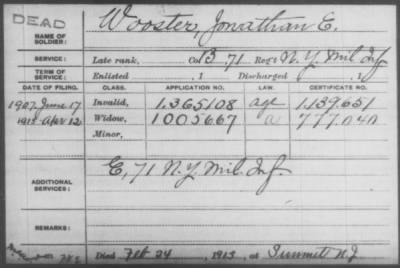 DEAD
NAME OF SOLDIER: Wooster, Jonathan E.
SERVICE: Late rank, Co. B 71 Reg't N.Y. Mil Inf
TERM OF SERVICE: Enlisted , 1 Discharged , 1
DATE OF FILING. CLASS. APPLICATION NO. LAW. CERTIFICATE NO.
1907 June 17 Invalid, 1.365108 age 1.139.651
1913 Apr 12 Widow, 1005667 a 777.040
Minor,
ADDITIONAL SERVICES: E, 71 N.Y. Mil. Inf.
REMARKS:
Died Feb 24, 1913, at Summit N.J.